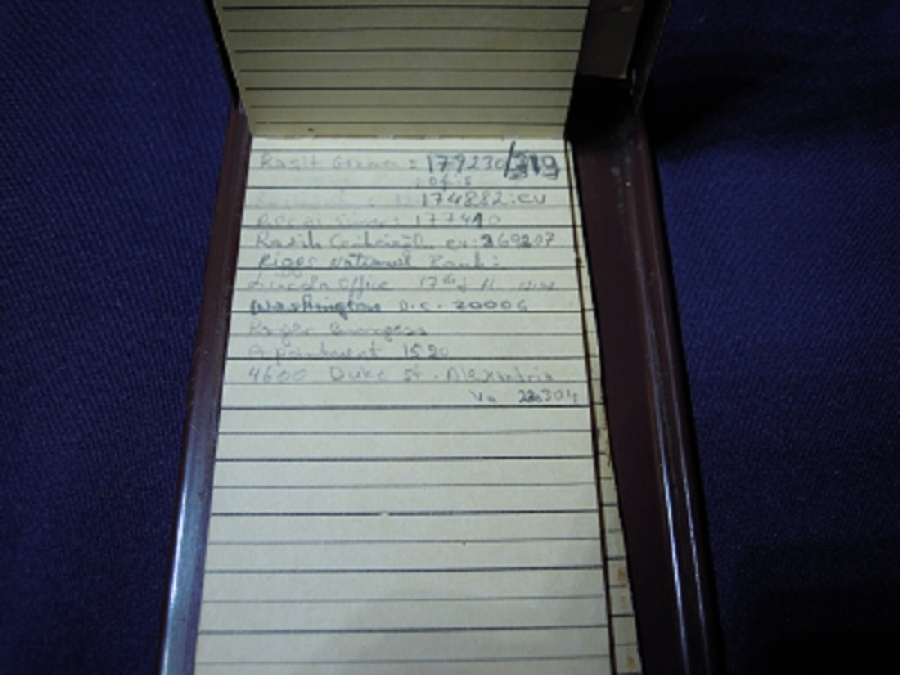 Raşit : 179230/319
: ofis
174882: ev
: 177410
Rasih ev: 269207
Riggs National Bank:
Lincoln Office 17th H. NW
Washington D.C. 20006
Roger Burgess
Apartment 1520
4600 Duke St. Alexandria
Va 22304